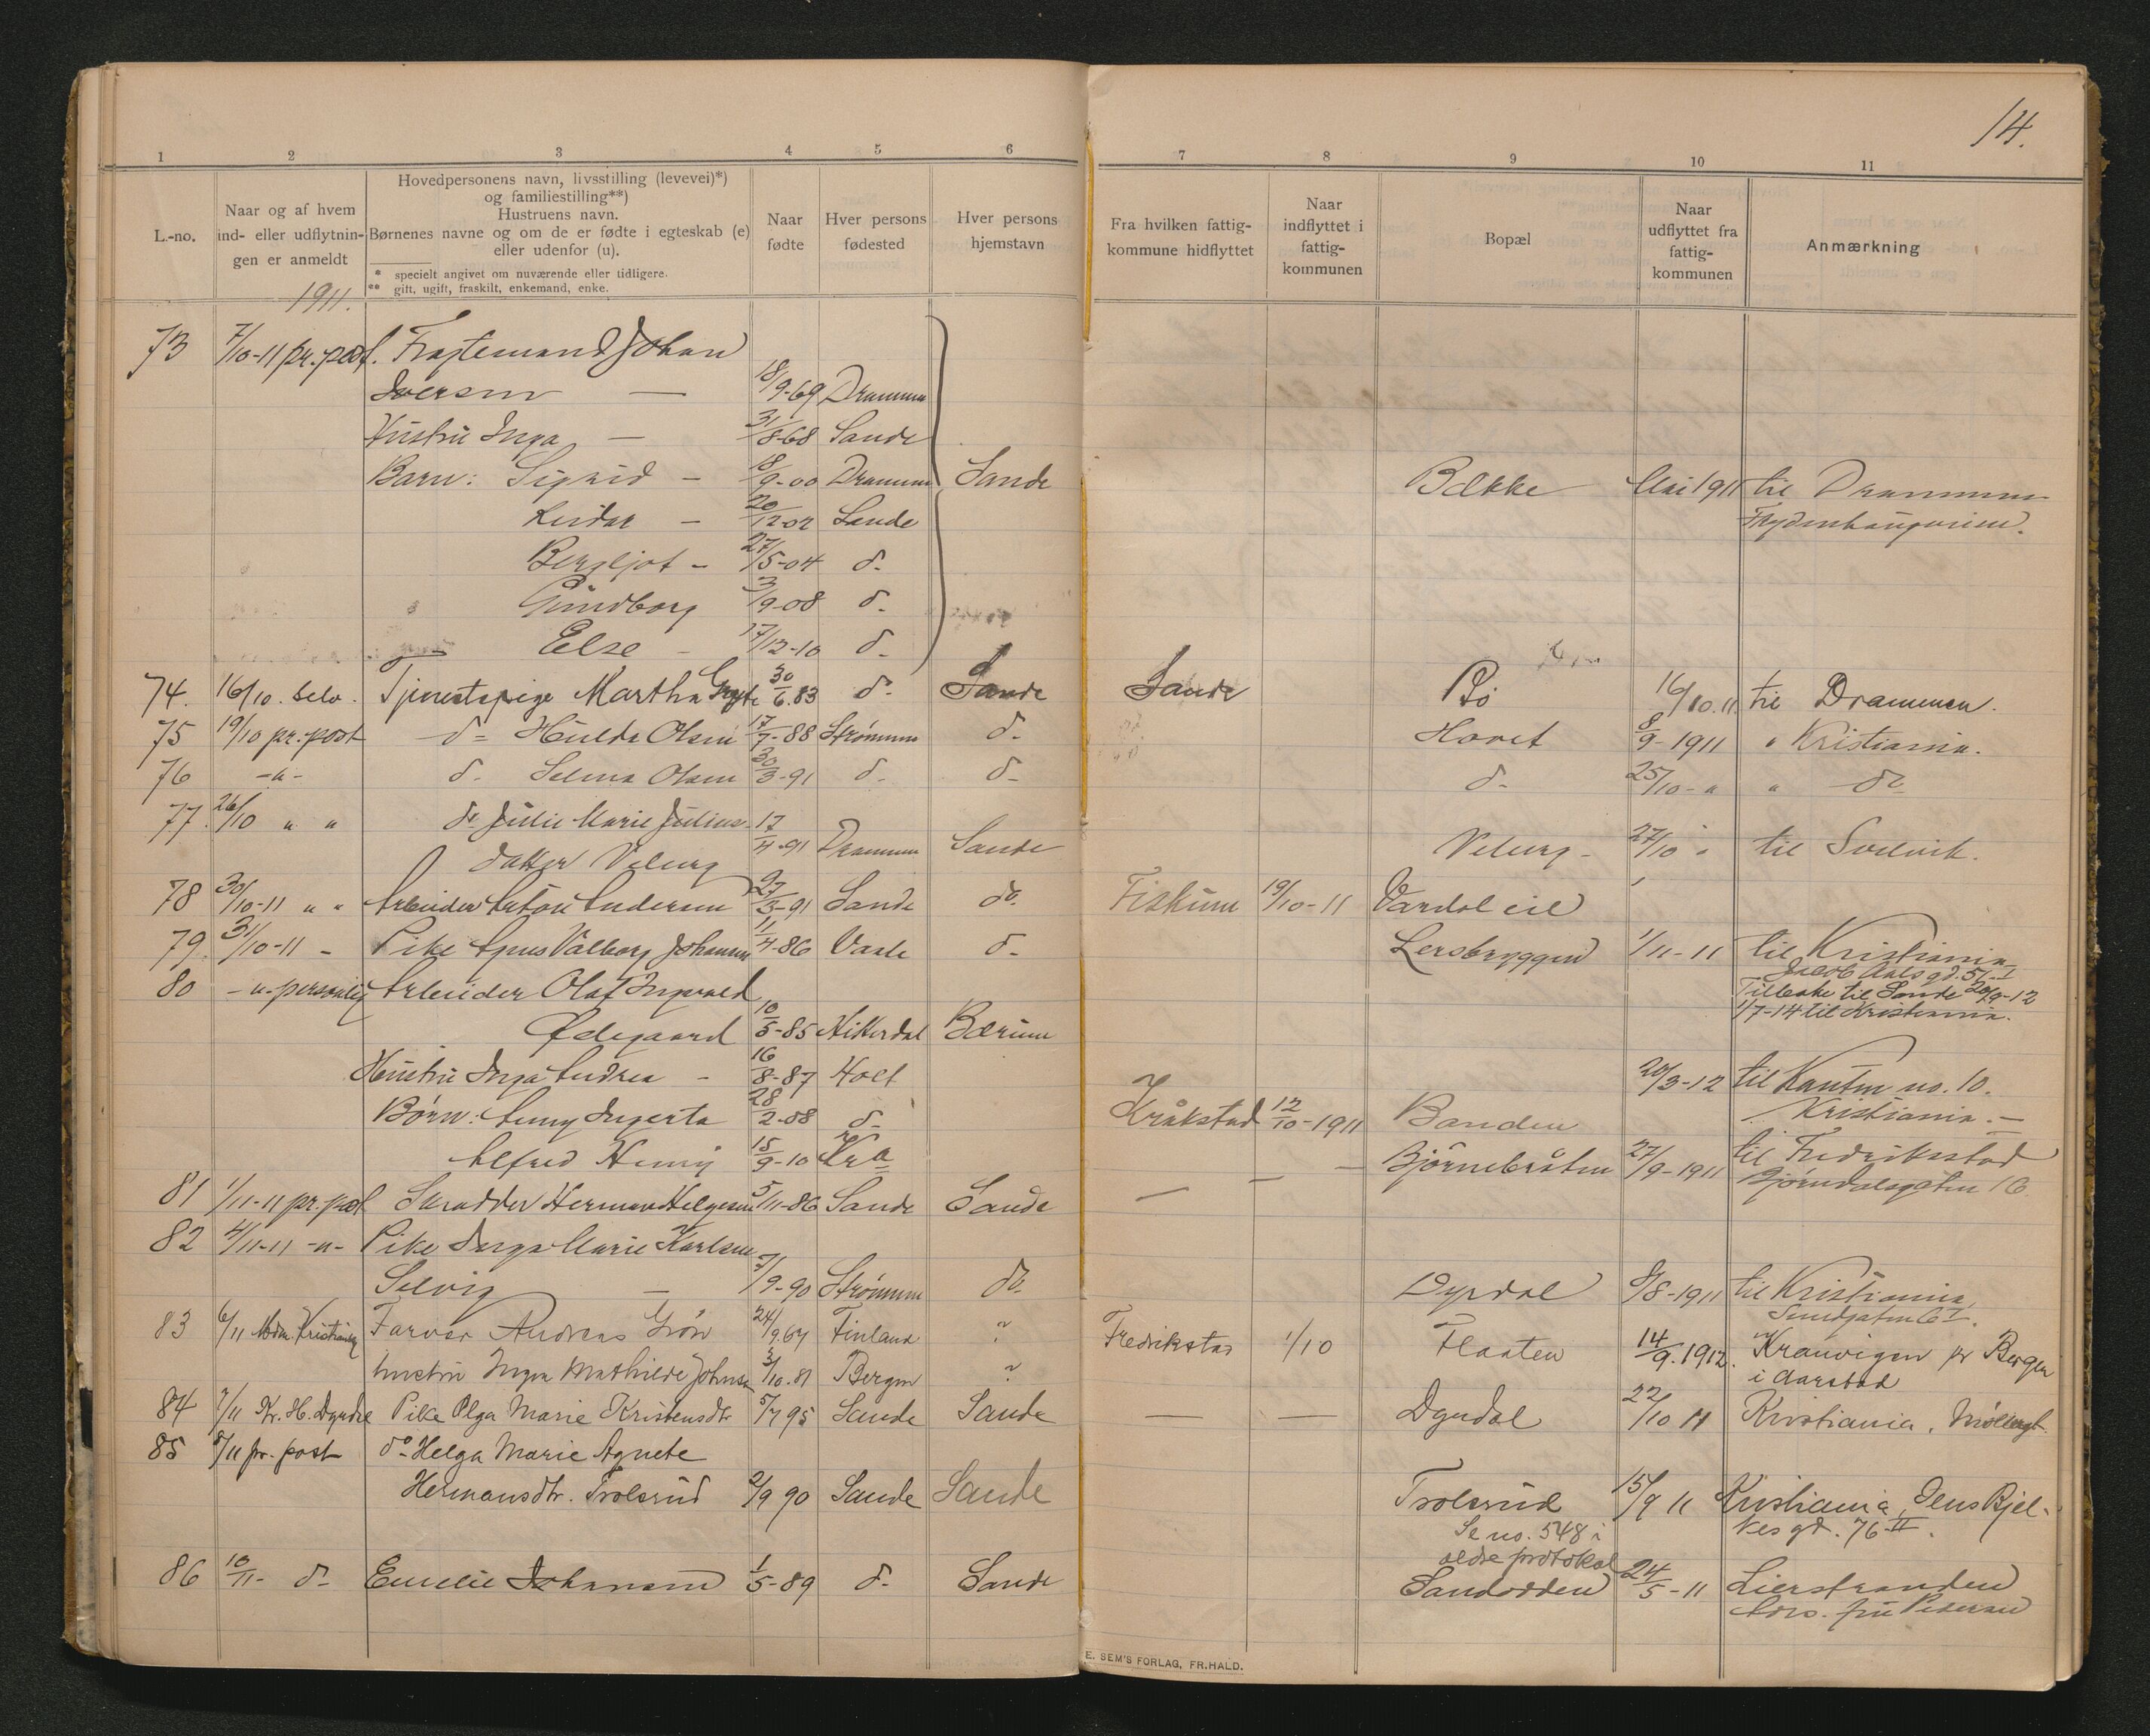 14.
1 2 3 4 5 6 7 8 9 10 11
L.-no.
Naar og af hvem
ind- eller udflytnin-
gen er anmeldt
Hovedpersonens navn, livsstilling (levevei)*)
og familiestilling**)
Hustruens navn.
Børnenes navne og om de er fødte i egteskab (e)
eller udenfor (u).
* specielt angivet om nuværende eller tidligere.
** gift, ugift, fraskilt, enkemand, enke.
Naar
fødte
Hver persons
fødested
Hver persons
hjemstavn
Fra hvilken fattig-
kommune hidflyttet
Naar
indflyttet i
fattig-
kommunen
Bopæl
Naar
udflyttet fra
fattig-
kommunen
Anmærkning
1911.
73 7/10-11 pr. post. Fragtemand Johan
Iversen — 18/9-69 Drammen
Hustru Inga — 31/8-68 Sande
Barn: Sigrid - 18/9-00 Drammen Sande Bække Mai 1911 til Drammen
Reidar - 20/12-02 Sande
Bergljot - 27/5-04 d-
Gundborg 3/9-08 d-
Else - 17/12-10 d-
74. 16/10. selv. Tjenestepige Martha 30/6.83 do Sande Sande Bö 16/10.11. til Drammen.
75 19/10 pr. post d- Hulda Olsen 17/7-88 Strømmen d- Hovet 8/9-1911 " Kristiania.
76 -"- d- Selma Olsen 30/3-91 d- d- d- 25/10-" " do
77. 26/10 " " do Julie Marie Julius-
datter Veburg 17/4-91 Drammen Sande Veburg - 27/10 " til Svelvik.
78 30/10-11 " " Arbeider Anton Andersen 27/3-91 Sande do. Fiskum 19/10-11 Vardal eie
79. 31/10-11 - Pike Agnes Valborg Johansen 11/4-86 Vaale d- Lersbryggen 1/11-11 til Kristiania
Jacob Aals gd. 51.I
Tilbake til Sande 20/9-12
1/7-14 til Kristiania.
80 -"- personlig Arbeider Olaf Ingvald
Ødegaard 10/5-85 Hitterdal Bærum
Hustru Inga Andrea - 16/8-87 Hoel 20/3-12 til no. 10.
Kristiania. —
Børn: Anny Ingerta 28/2-08 d- Kråkstad 12/10-1911 Banden
Alfred Henry 15/9-10 Kra
81 1/11-11 pr. post Skrædder Herman Helgesen 5/11-86 Sande Sande — — — Bjørnebråten 27/9-1911 til Fredrikstad
Bjørndalsgaten 16
82 4/11-11 -"- Pike Inga Marie Karlsen
Selvig — 7/9-90 Strømmen do. Dyrdal 8/8-1911 til Kristiania
83 6/11 Kristiania Farver Andreas Grön 24/9.67 Finland ? Fredrikstad 1/10 Flaaten 14/9.1912. Kranvigen pr Bergen
i Aarstad
hustru Inga Mathilde Johnsen 3/10.81 Bergen ?
84 7/11 Kr. H. Dyrdal Pike Olga Marie Kristensdtr 5/7 95 Sande Sande — — Dyrdal 22/10 11 Kristiania, Møllergt.
85 8/11 pr. post do Helga Marie Agnete
Hermansdtr. Trolsrud 2/9 90 Sande Sande Trolsrud 15/9 11 Kristiania Jens Bjel-
kes gd. 76 II.
Se no. 548 i
ældre protokol
86 10/11- d- Emelie Johansen 1/5-89 d- Sande Sandodden 24/5-11 Lierstranden
Adrs. fru Pedersen
E. SEM'S FORLAG, FR.HALD.